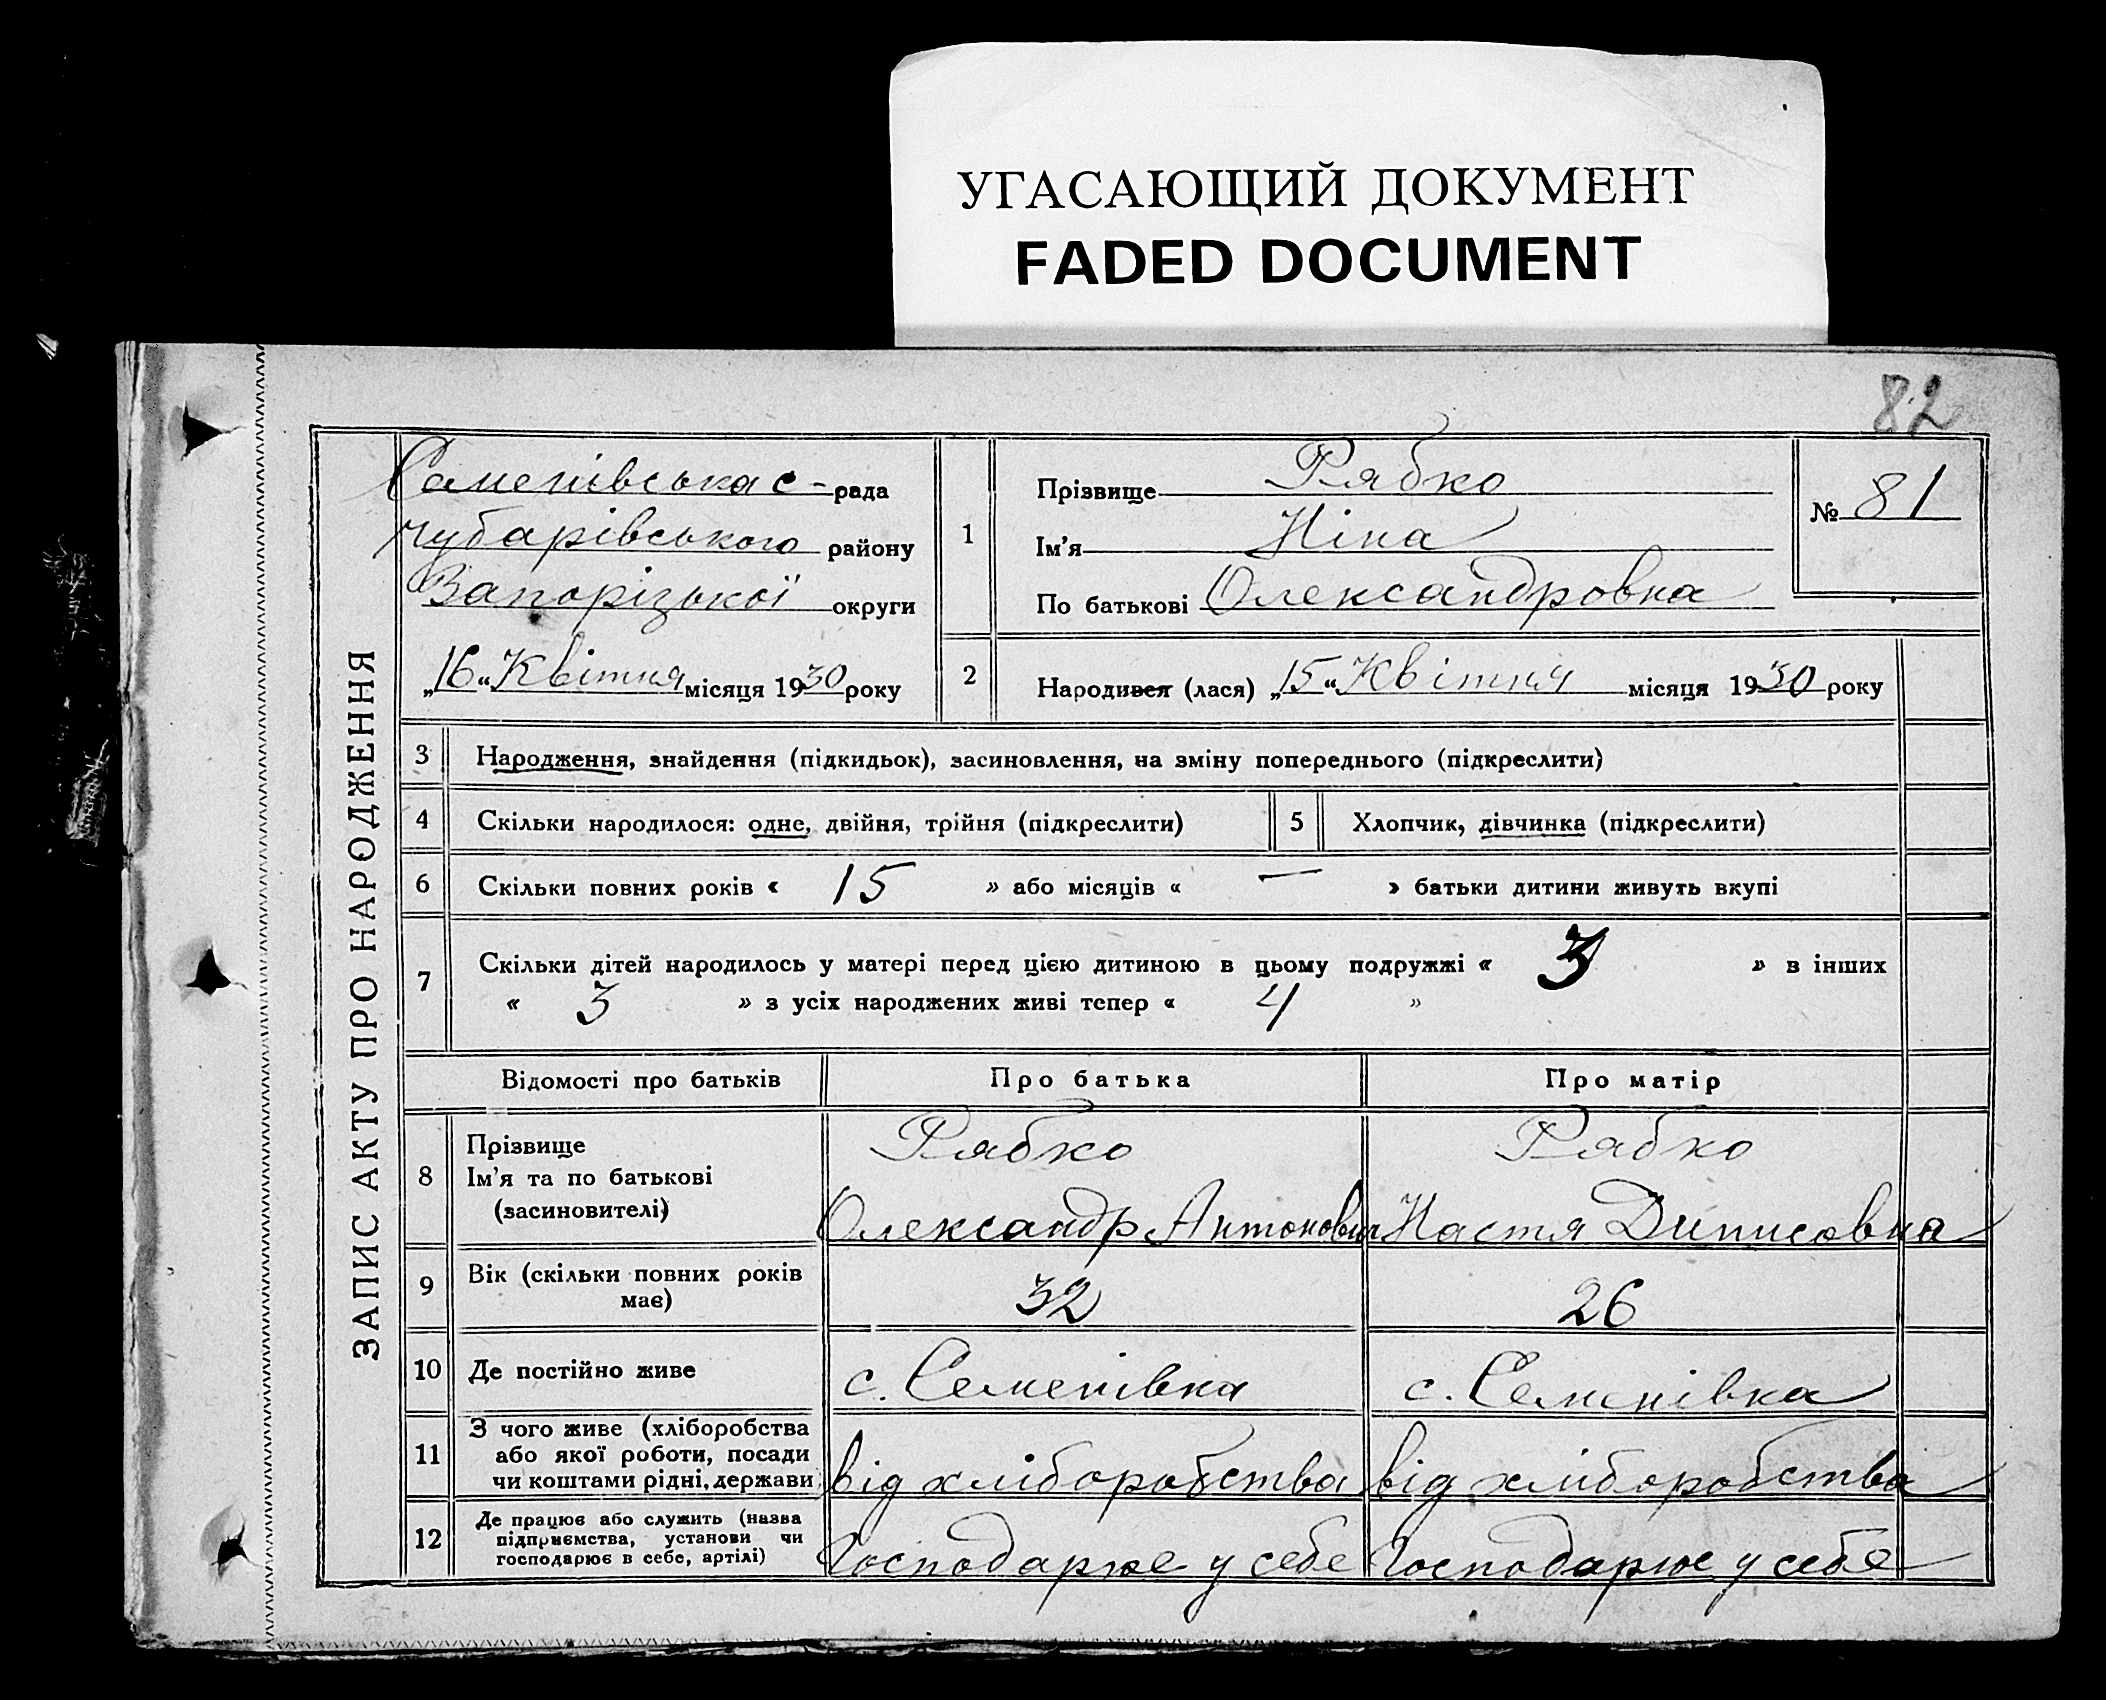 УГАСАЮЩИЙ ДОКУМЕНТ
FADED DOCUMENT
82
ЗАПИС АКТУ ПРО НАРОДЖЕННЯ
Семенівська с-рада
Чубарівського району
Запорізької округи
„16“ Квітня місяця 1930 року
1
Прізвище Рябко
Ім'я Ніна
По батькові Олександровна
№ 81
2 Народився (лася) „15“ Квітня місяця 1930 року
3 Народження, знайдення (підкидьок), засиновлення, на зміну попереднього (підкреслити)
4 Скільки народилося: одне, двійня, трійня (підкреслити) 5 Хлопчик, дівчинка (підкреслити)
6 Скільки повних років « 15 » або місяців « — » батьки дитини живуть вкупі
7 Скільки дітей народилось у матері перед цією дитиною в цьому подружжі « 3 » в інших
« 3 » з усіх народжених живі тепер « 4 »
Відомості про батьків Про батька Про матір
8 Прізвище Рябко Рябко
Ім'я та по батькові
(засиновителі) Олександр Антонович Настя Динисовна
9 Вік (скільки повних років
має) 32 26
10 Де постійно живе с. Семенівка с. Семенівка
11 З чого живе (хліборобства
або якої роботи, посади
чи коштами рідні, держави від хліборобства від хліборобства
12 Де працює або служить (назва
підприємства, установи чи
господарює в себе, артілі) Господарює у себе Господарює у себе